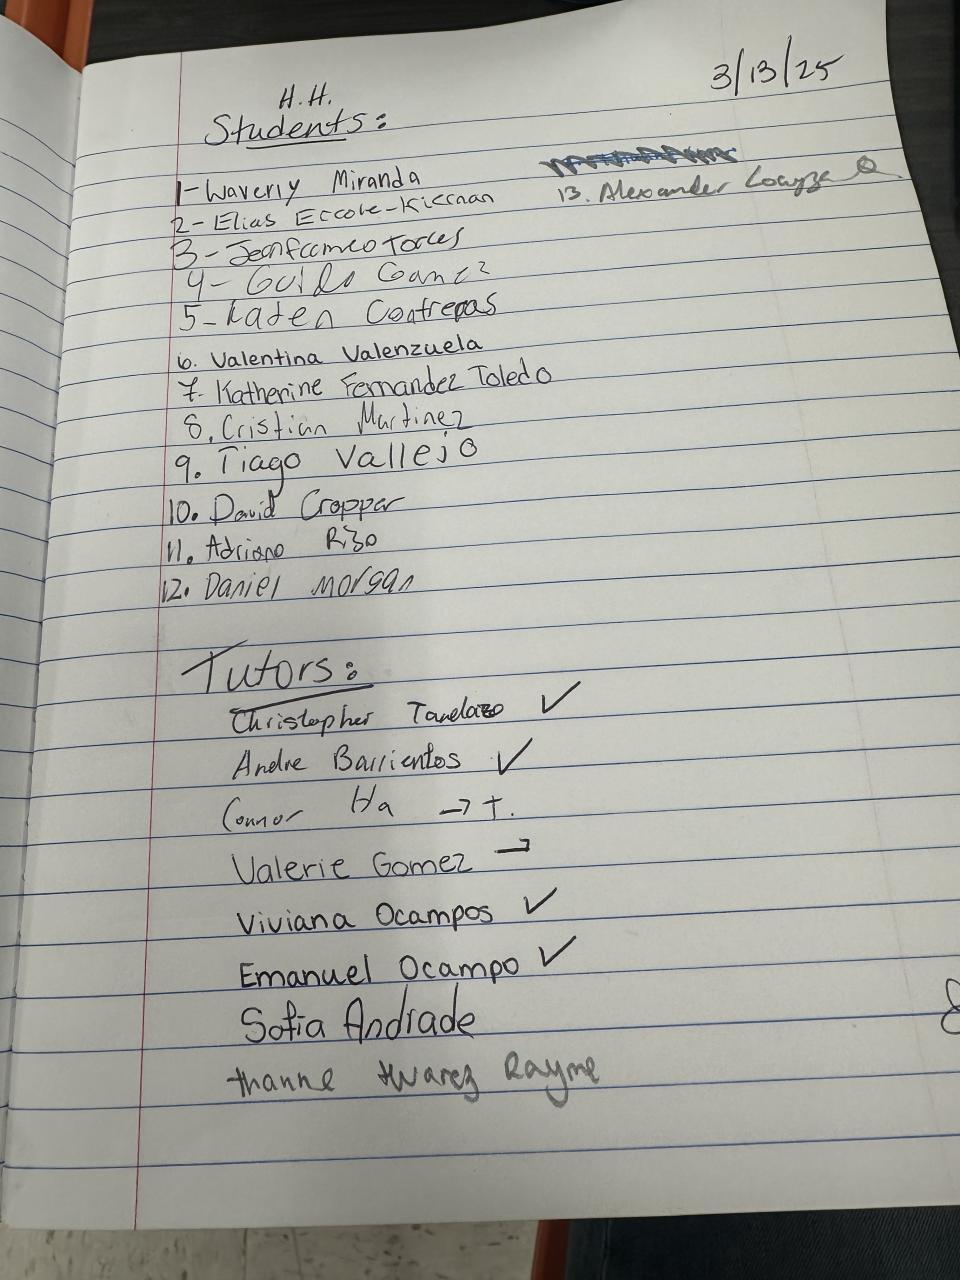 3/13/25
H.H.
Students:
1-Waverly Miranda
2-Elias Ercole-Kiernan
3-Jeanfranco Torres
4-Guido Gamez
5-Kaden Contreras
6. Valentina Valenzuela
7. Katherine Fernandez Toledo
8. Cristian Martinez
9. Tiago Vallejo
10. David Cropper
11. Adriano Rizo
12. Daniel Morgan
13. Alexander
Tutors:
Christopher ✓
Andre Barrientos ✓
Connor Ha → T.
Valerie Gomez →
Viviana Ocampos ✓
Emanuel Ocampo ✓
Sofia Andrade